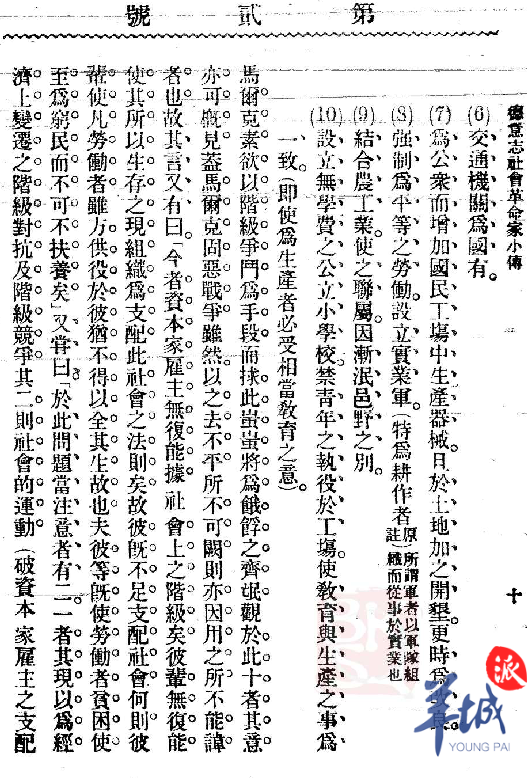 第貳號
德意志社會革命家小傳
十
(6)交通機關爲國有。
(7)爲公衆而增加國民工塲中生產器械、且於土地加之開墾、更時爲改良。
(8)强制爲平等之勞働。設立實業軍(特爲耕作者原註)所謂軍者以軍隊組織而從事於實業也
(9)結合農工業使之聯屬因漸泯邑野之別。
(10)設立無學費之公立小學校。禁青年之執役於工塲。使敎育與生產之事爲
一致。(即使爲生產者必受相當敎育之意)。
馬爾克素欲以階級爭鬥爲手段而捄此蚩蚩將爲餓莩之齊氓觀於此十者其意
亦可槪見蓋馬爾克固惡戰爭雖然以之去不平所不可闕則亦因用之所不能諱
者也故其言又有曰「今者資本家雇主無復能據社會上之階級矣彼輩無復能
使其所以生存之現組織爲支配此社會之法則矣故彼旣不足支配社會何則彼
輩使凡勞働者雖方供役於彼猶不得以全其生故也夫彼等旣使勞働者貧困使
至爲窮民而不可不扶養矣」又嘗曰「於此問題當注意者有二一者其現以爲經
濟上變遷之階級對抗及階級競爭其二則社會的運動(破資本家雇主之支配
派
羊城
YOUNG PAI